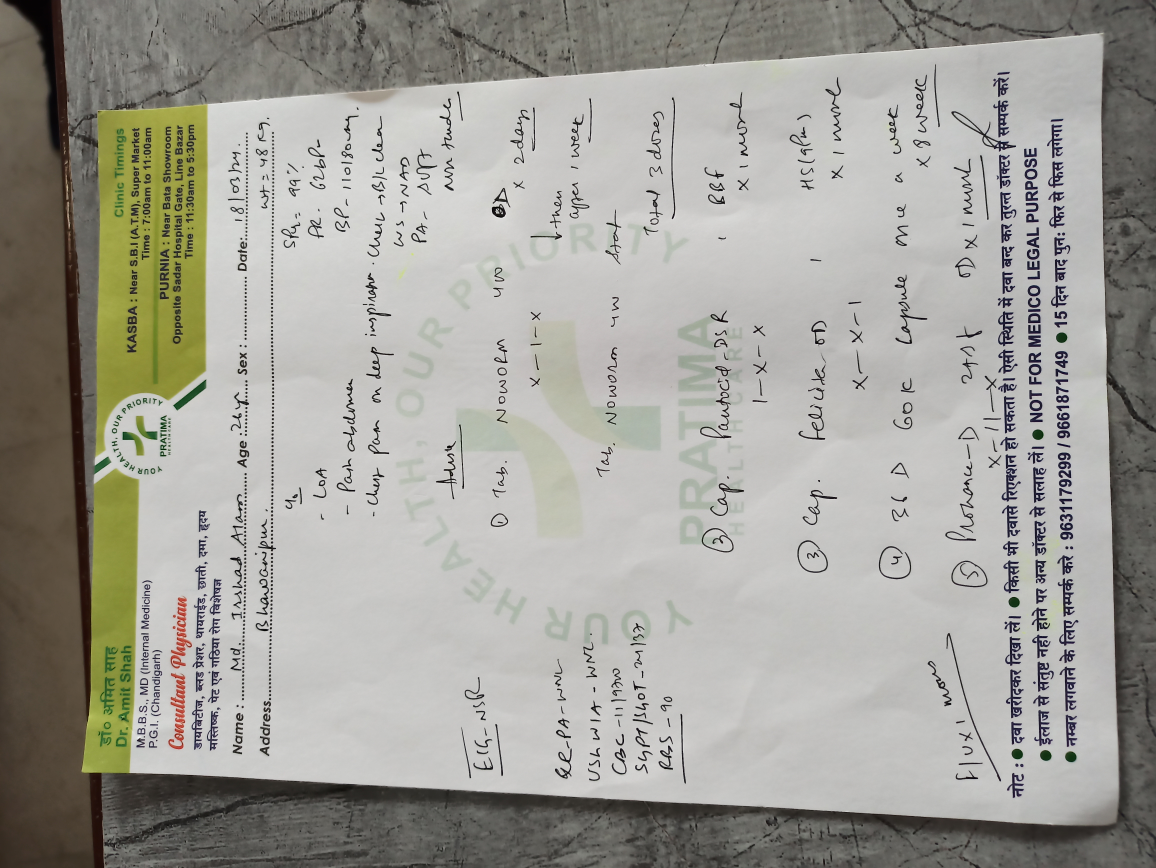 डॉ० अमित साह
Dr. Amit Shah
M.B.B.S., MD (Internal Medicine)
P.G.I. (Chandigarh)
Consultant Physician
डायबिटीज, ब्लड प्रेशर, थायराईड, छाती, दमा, हृदय
मस्तिष्क, पेट एवं गठिया रोग विशेषज्ञ
YOUR HEALTH, OUR PRIORITY
PRATIMA
HEALTH CARE
Clinic Timings
KASBA : Near S.B.I (A.T.M), Super Market
Time : 7:00am to 11:00am
PURNIA : Near Bata Showroom
Opposite Sadar Hospital Gate, Line Bazar
Time : 11:30am to 5:30pm
Name : Md. Irshad Alam Age : 26yr Sex : Date: 18/03/24.
Address. Bhawanipur. wt = 48 kg.
c/o
- LOA
- Pain abdomen
- Chest pain on deep inspiration.
SPO2 99%
PR. 62bpm
BP - 110/80
Chest → B/L clear
CVS → NAD
PA - soft
non tender
Advise
ECG - NSR
① Tab. NOWORM 400 OD
x - 1 - x x 2 days
↓ then
after 1 week
Tab. NOWORM 400 stat
Total 3 doses
CXR-PA - WNL
USG W/A - WNL.
CBC - 11/9700
SGPT/SGOT - 24/37
RBS - 90
② Cap. Pantocid - DSR 1 BBF
1 - x - x x 1 month
③ Cap. Felicita - OD 1 HS (9 Pm)
x - x - 1 x 1 month
④ D 60K capsule once a week
x 8 week
⑤ OD x 1 month
x - 1 - x
F/U x 1 month
YOUR HEALTH, OUR PRIORITY
PRATIMA
HEALTH CARE
नोट : ● दवा खरीदकर दिखा लें। ● किसी भी दवासे रिएक्शन हो सकता है। ऐसी स्थिति में दवा बन्द कर तुरन्त डॉक्टर से सम्पर्क करें।
● ईलाज से संतुष्ट नही होने पर अन्य डॉक्टर से सलाह लें। ● NOT FOR MEDICO LEGAL PURPOSE
● नम्बर लगवाने के लिए सम्पर्क करे : 9631179299 / 9661871749 ● 15 दिन बाद पुन: फिर से फिस लगेगा।